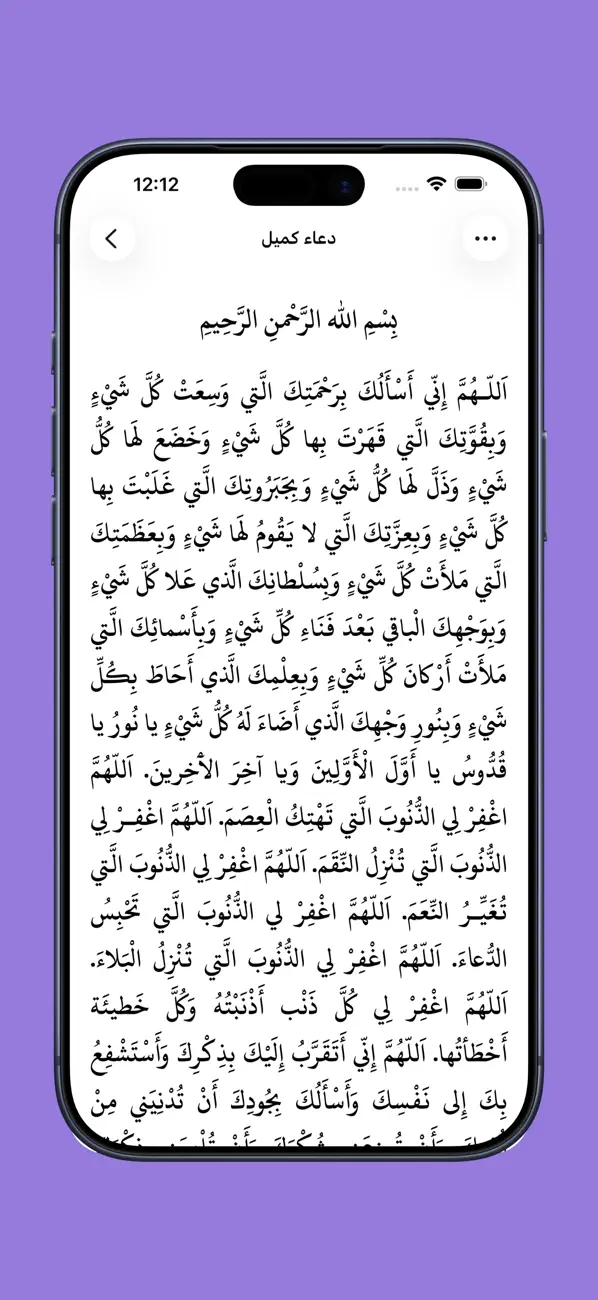 12:12
دعاء كميل
بِسْمِ الله الرَّحْمنِ الرَّحِيمِ
اَللّـهُمَّ إِنّي أَسْأَلُكَ بِرَحْمَتِكَ الَّتي وَسِعَتْ كُلَّ شَيْءٍ
وَبِقُوَّتِكَ الَّتي قَهَرْتَ بِها كُلَّ شَيْءٍ وَخَضَعَ لَها كُلُّ
شَيْءٍ وَذَلَّ لَها كُلُّ شَيْءٍ وَبِجَبَرُوتِكَ الَّتي غَلَبْتَ بِها
كُلَّ شَيْءٍ وَبِعِزَّتِكَ الَّتي لا يَقُومُ لَها شَيْءٍ وَبِعَظَمَتِكَ
الَّتي مَلأَتْ كُلَّ شَيْءٍ وَبِسُلْطانِكَ الَّذي عَلا كُلَّ شَيْءٍ
وَبِوَجْهِكَ الْباقي بَعْدَ فَنَاءِ كُلِّ شَيْءٍ وَبِأَسْمائِكَ الَّتي
مَلأَتْ أَرْكانَ كُلِّ شَيْءٍ وَبِعِلْمِكَ الَّذي أَحَاطَ بِكُلِّ
شَيْءٍ وَبِنُورِ وَجْهِكَ الَّذي أَضَاءَ لَهُ كُلُّ شَيْءٍ يا نُورُ يا
قُدُّوسُ يا أَوَّلَ الْأَوَّلِينَ وَيا آخِرَ الأَخِرينَ. اَللّهُمَّ
اغْفِرْ لِي الذُّنُوبَ الَّتي تَهْتِكُ الْعِصَمَ. اَللّهُمَّ اغْفِــرْ لِي
الذُّنُوبَ الَّتي تُنْزِلُ النِّقَمَ. اَللّهُمَّ اغْفِرْ لِي الذُّنُوبَ الَّتي
تُغَيِّــرُ النِّعَمَ. اَللّهُمَّ اغْفِرْ لي الذُّنُوبَ الَّتي تَحْبِسُ
الدُّعاءَ. اَللّهُمَّ اغْفِرْ لِي الذُّنُوبَ الَّتي تُنْزِلُ الْبَلاءَ.
اَللّهُمَّ اغْفِرْ لِي كُلَّ ذَنْب أَذْنَبْتُهُ وَكُلَّ خَطيئَة
أَخْطَأتُها. اَللّهُمَّ إِنّي أَتَقَرَّبُ إِلَيْكَ بِذِكْرِكَ وَأَسْتَشْفِعُ
بِكَ إِلى نَفْسِكَ وَأَسْأَلُكَ بِجُودِكَ أَنْ تُدْنِيَني مِنْ